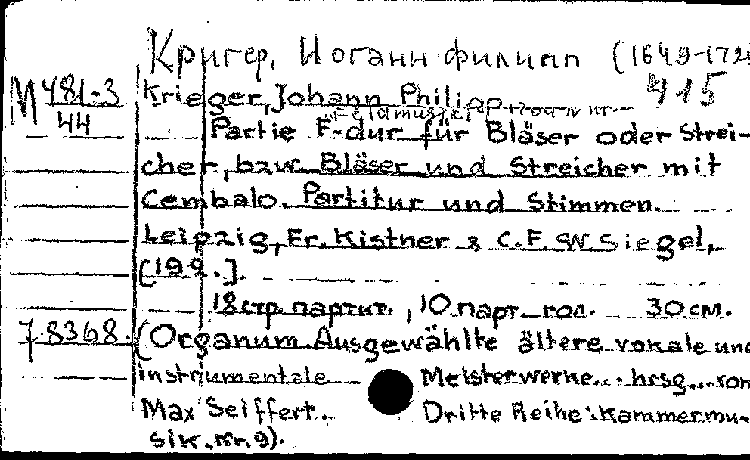 Кригер, Иоганн Филипп (1649-172
М 481-3
44
415
Krieger, Johann Philipp
Partie F-dur für Bläser oder Strei-
cher, bzw. Bläser und Streicher mit
Cembalo. Partitur und Stimmen.
Leipzig, Fr. Kistner & C.F.W. Siegel,
[192.].
18 стр. партит., 10 парт. гол. 30 см.
7-8368.
(Organum Ausgewählte ältere vokale und
instrumentale Meisterwerke... hrsg... von
Max Seiffert. Dritte Reihe: Kammermu-
sik. Nr. 9).